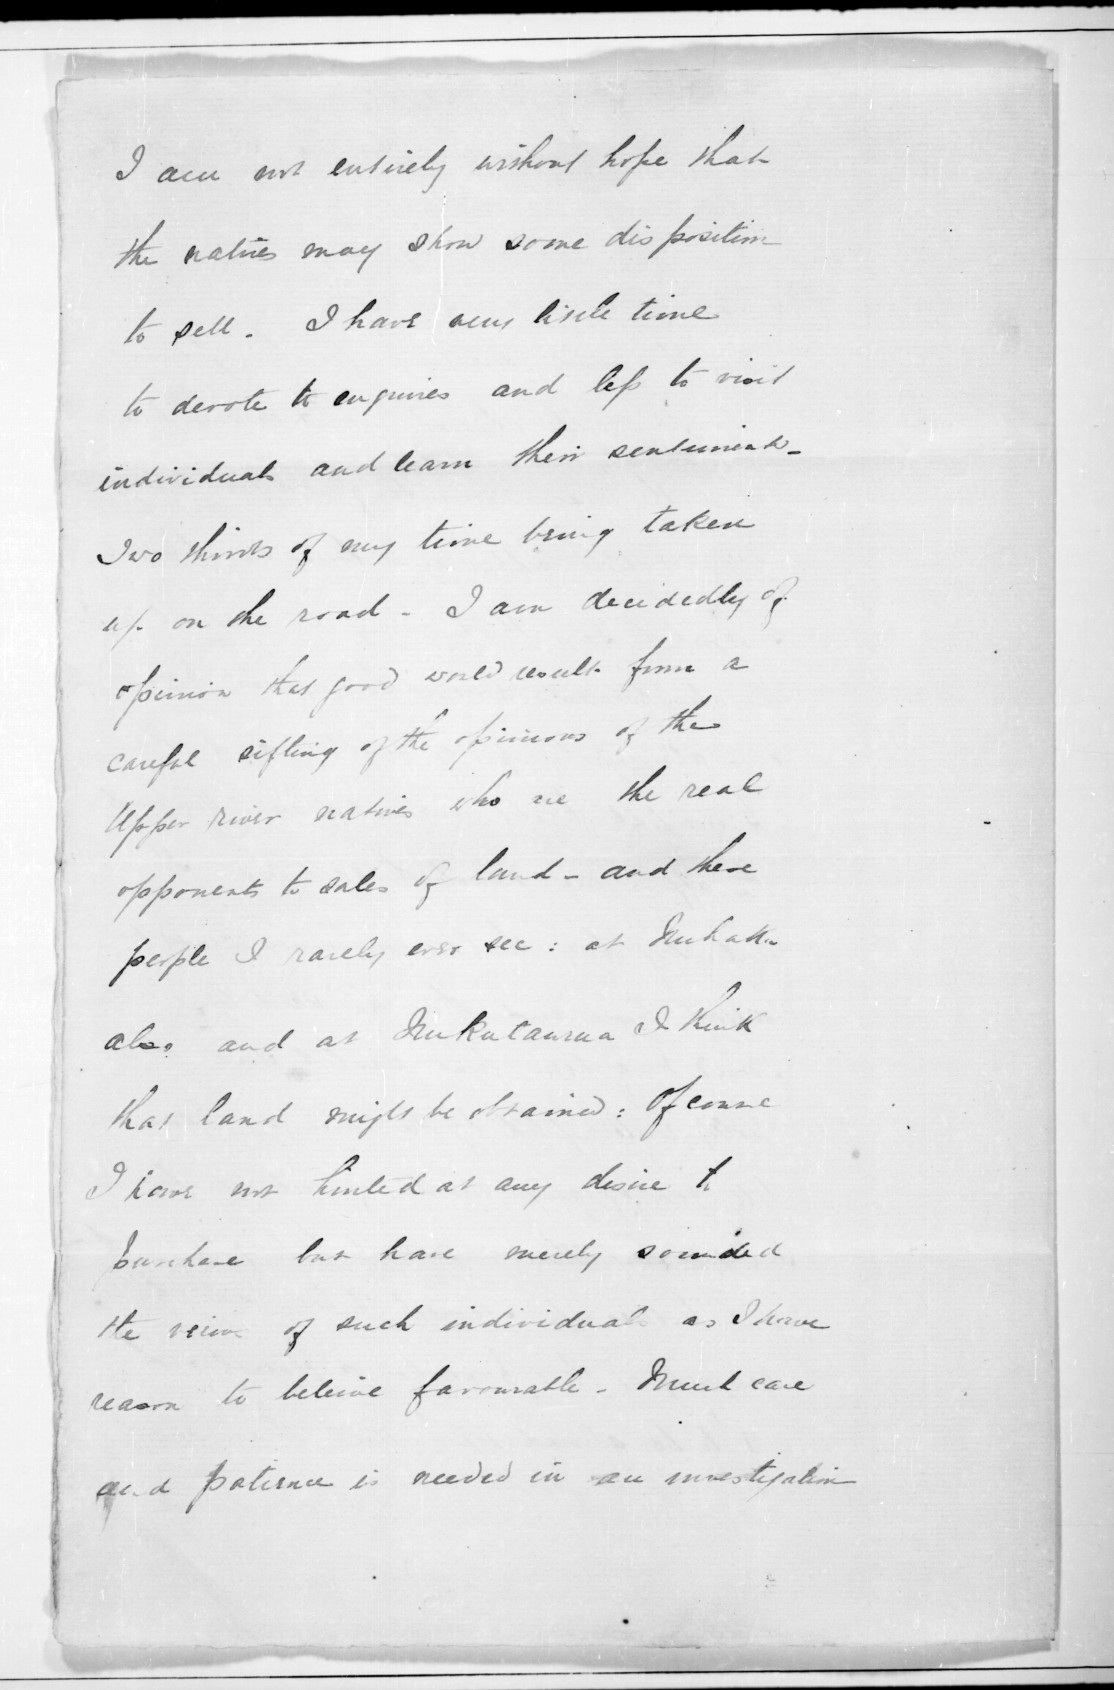 I am not entirely without hope that
the natives may show some disposition
to sell. I have very little time
to devote to enquiries and less to visit
individuals and learn their sentiments -
Two thirds of my time being taken
up on the road - I am decidedly of
opinion that good would result from a
careful sifting of the opinions of the
Upper river natives who are the real
opponents to sales of land - and these
people I rarely ever see : at Nuhaka
also and at Nukutaurua I think
that land might be obtained : Of course
I have not hinted at any desire to
purchase but have merely sounded
the views of such individuals as I have
reason to beleive favourable - Much care
and patience is needed in an investigation